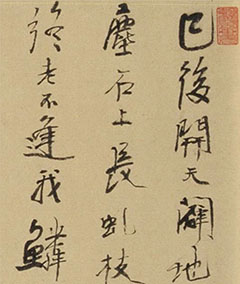 已後開天闢地
塵石上長虬枝
老不逢我